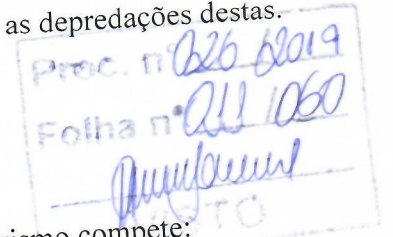 as depredações destas.
Proc. nº 026/2019
Folha nº 011/060
VISTO
rismo compete: